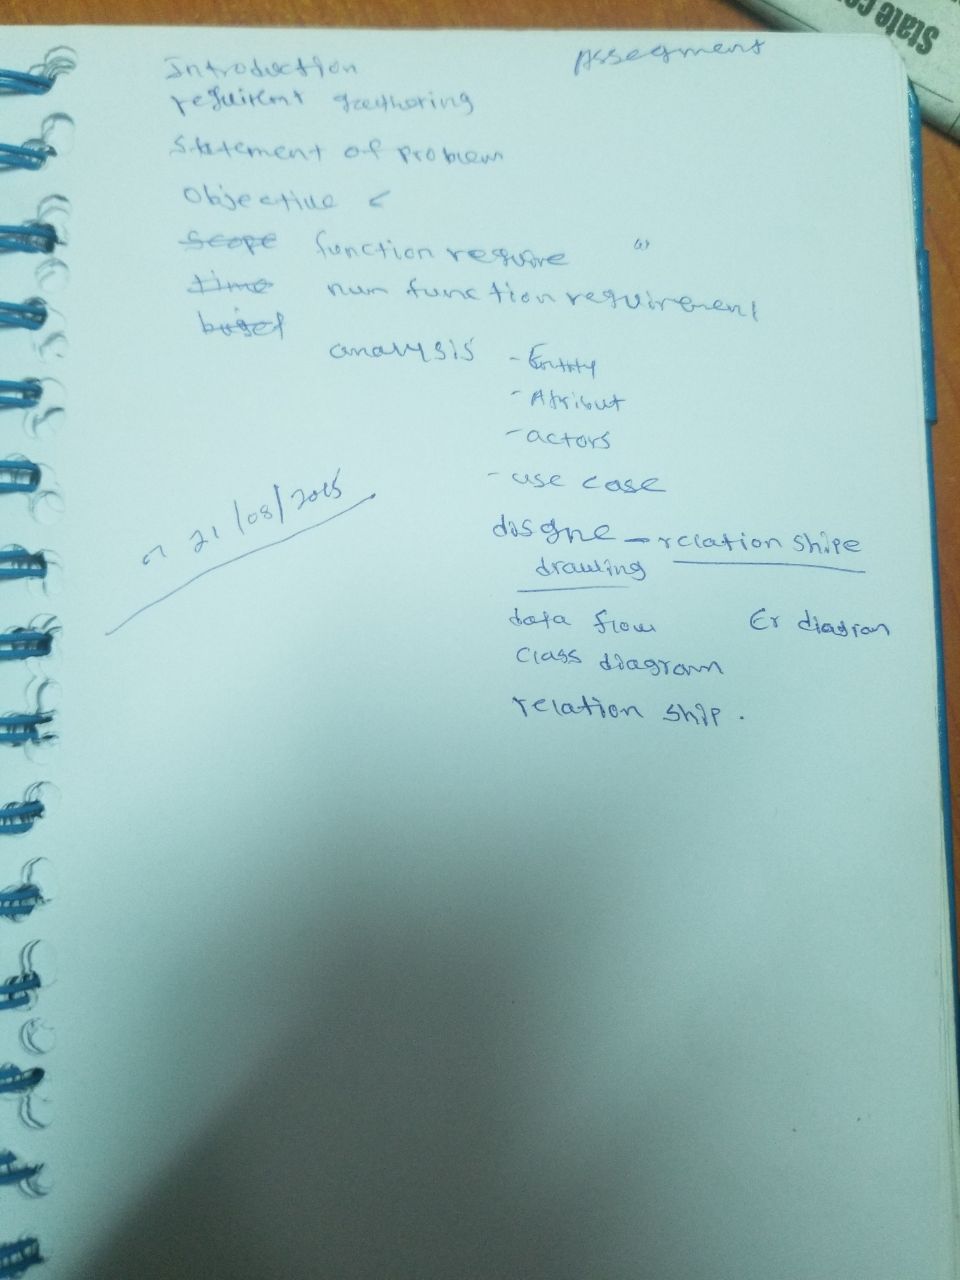 State co
Assegment
Introduction
requirent geathering
Statement of problem
Objective
Scope function require
time nun function requirement
budget
analysis - Entity
- Atribut
- actors
- use case
21/08/2015
disgne - relation shipe
drawing
data flow Er diagran
class diagram
relation ship.